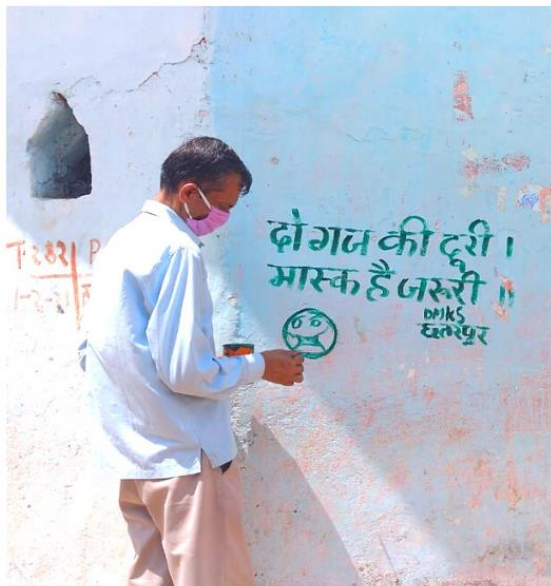 दो गज की दूरी ।
मास्क है जरुरी ॥
DMKS
छतरपुर